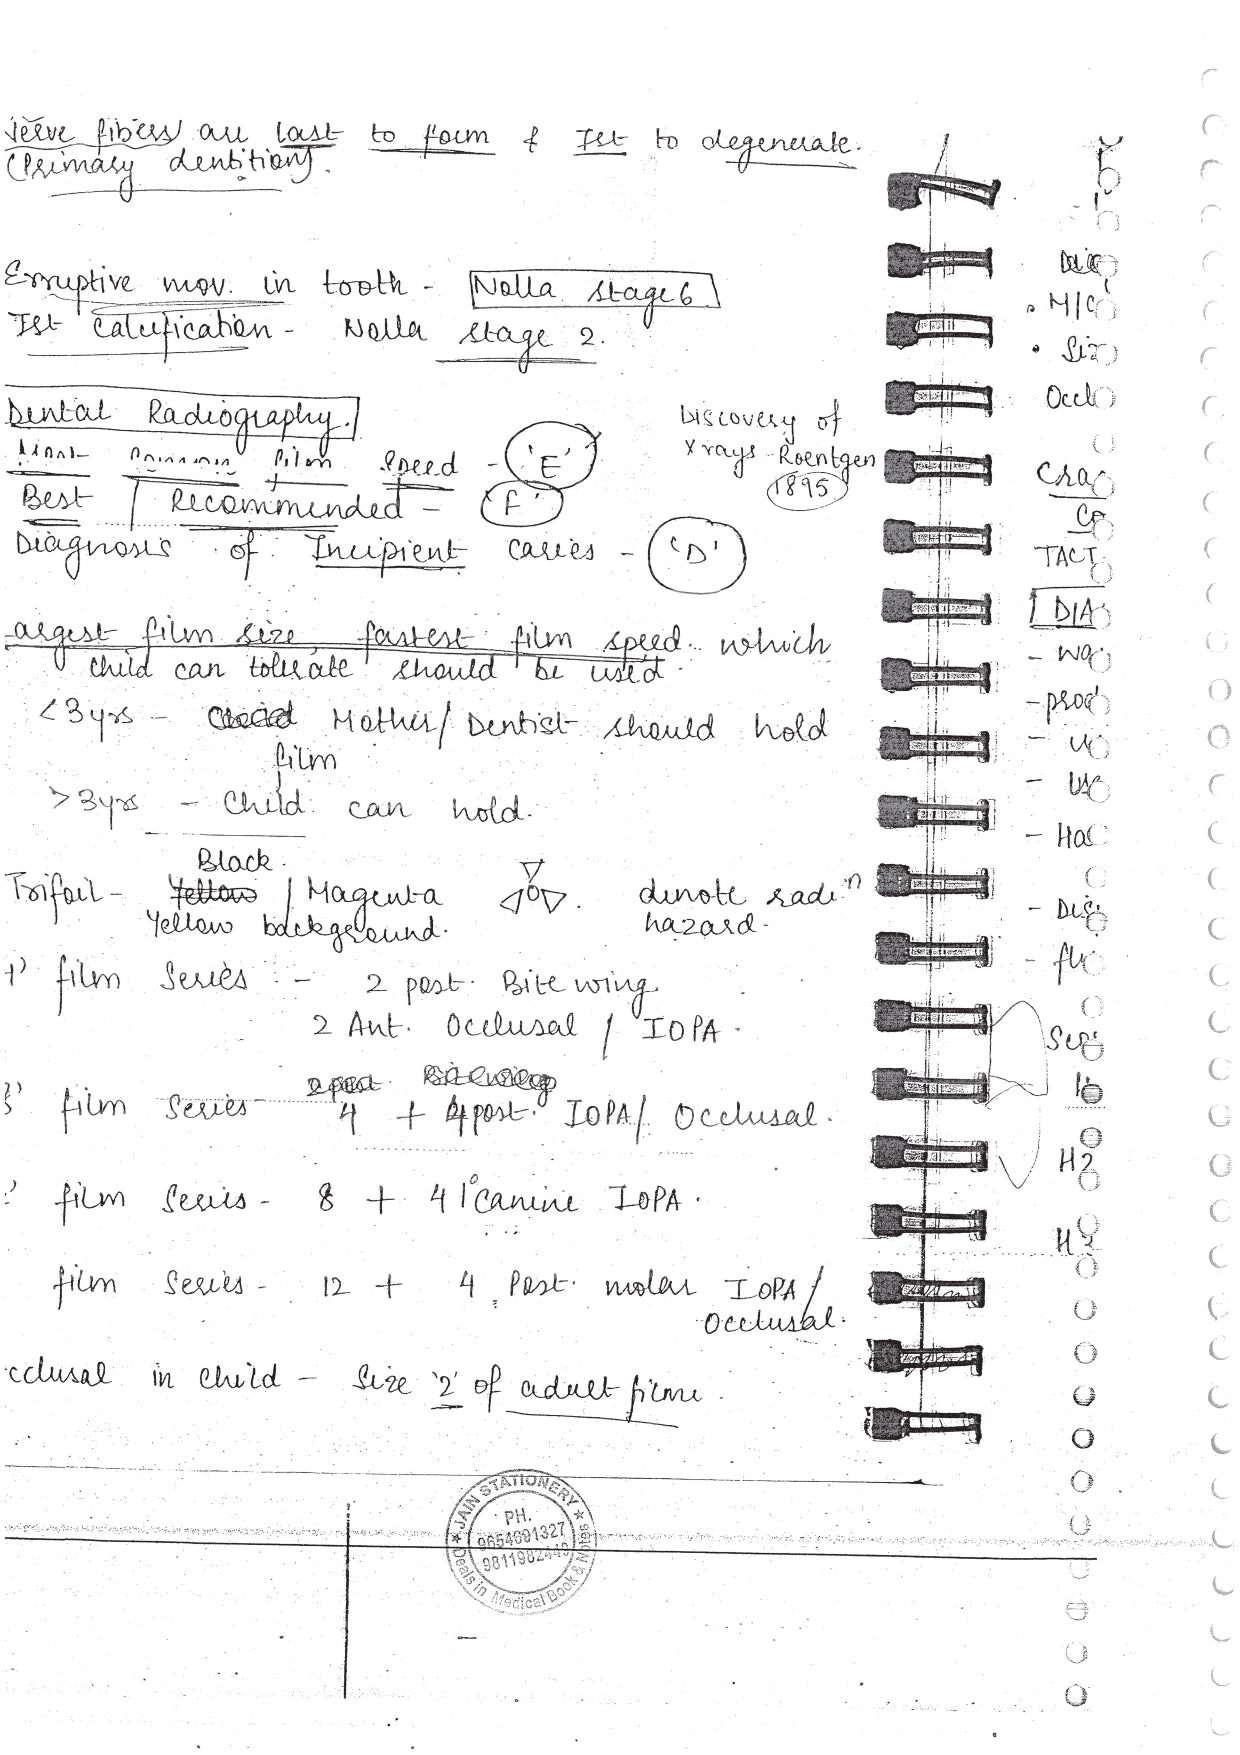 nerve fibers are last to form & Ist to degenerate.
(Primary dentition).
Erruptive mov. in tooth - Nolla stage 6
Ist calcification - Nolla stage 2.
Dental Radiography.
Most common film speed - 'E'
Best / Recommended - 'F'
Diagnosis of Incipient caries - 'D'
Discovery of
X rays - Roentgen
1895
argest film size, fastest film speed which
child can tolerate should be used.
<3yrs - Mother/Dentist should hold
film
>3yrs - child can hold.
Black.
Trifoil - Yellow / Magenta denote radiⁿ
Yellow background. hazard.
film series - 2 post. Bite wing
2 Ant. Occlusal / IOPA.
2 post. Bitewing
film series - 4 + 4 post. IOPA/ Occlusal.
film series - 8 + 4 1° canine IOPA.
film series - 12 + 4 Post. molar IOPA/
Occlusal.
cclusal in child - size '2' of adult film.
M/C
Siz
Occl
Cra
TACT
DIA
- wa
- prod
- Us
- Ha
- Dis
H2
H3
★ JAIN STATIONERY ★
PH.
9654691327
9811982440
Deals in Medical Book & Notes